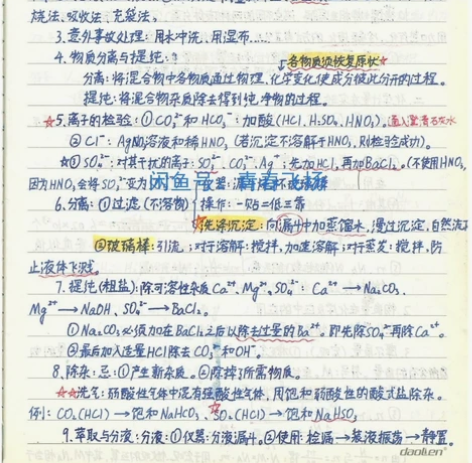 烧法、吸收法、充袋法。
3.意外事故处理:用水冲洗、用湿布……
4.物质分离与提纯:
各物质须恢复原状
分离:将混合物中各物质通过物理、化学变化使成分彼此分开的过程。
提纯:将混合物杂质除去得到纯净物的过程。
☆5.离子的检验:①CO₃²⁻和HCO₃⁻:加酸(HCl、H₂SO₄、HNO₃)。通入澄清石灰水
②Cl⁻:AgNO₃溶液和稀HNO₃(若沉淀不溶解于HNO₃,则检验成功)。
☆③SO₄²⁻:对其干扰的离子:SO₃²⁻、CO₃²⁻、Ag⁺:先加HCl,再加BaCl₂。(不使用HNO₃,
因为HNO₃会将SO₃²⁻变为
闲鱼号:青春飞扬
6.分离:①过滤(不溶物) 操作:一贴二低三靠
☆洗涤沉淀:向漏斗中加蒸馏水,浸过沉淀,自然流
②玻璃棒:引流;对于溶解:搅拌,加速溶解;对于蒸发:搅拌,防
止液体飞溅。
7.提纯(粗盐):除可溶性杂质Ca²⁺、Mg²⁺、SO₄²⁻:Ca²⁺→Na₂CO₃、
Mg²⁺→NaOH、SO₄²⁻→BaCl₂。
①Na₂CO₃必须加在BaCl₂之后以除去过量的Ba²⁺。即先除SO₄²⁻再除Ca²⁺。
②最后加入适量HCl除去CO₃²⁻和OH⁻。
8.除杂:忌:①产生新杂质。②除掉了所需物质。
☆☆洗气:弱酸性气体中混有强酸性气体,用饱和弱酸性的酸式盐除杂。
例:CO₂(HCl)→饱和NaHCO₃、☆SO₂(HCl)→饱和NaHSO₃
9.萃取与分液:分液:①仪器:分液漏斗。②使用:检漏→装液振荡→静置。
daolien®